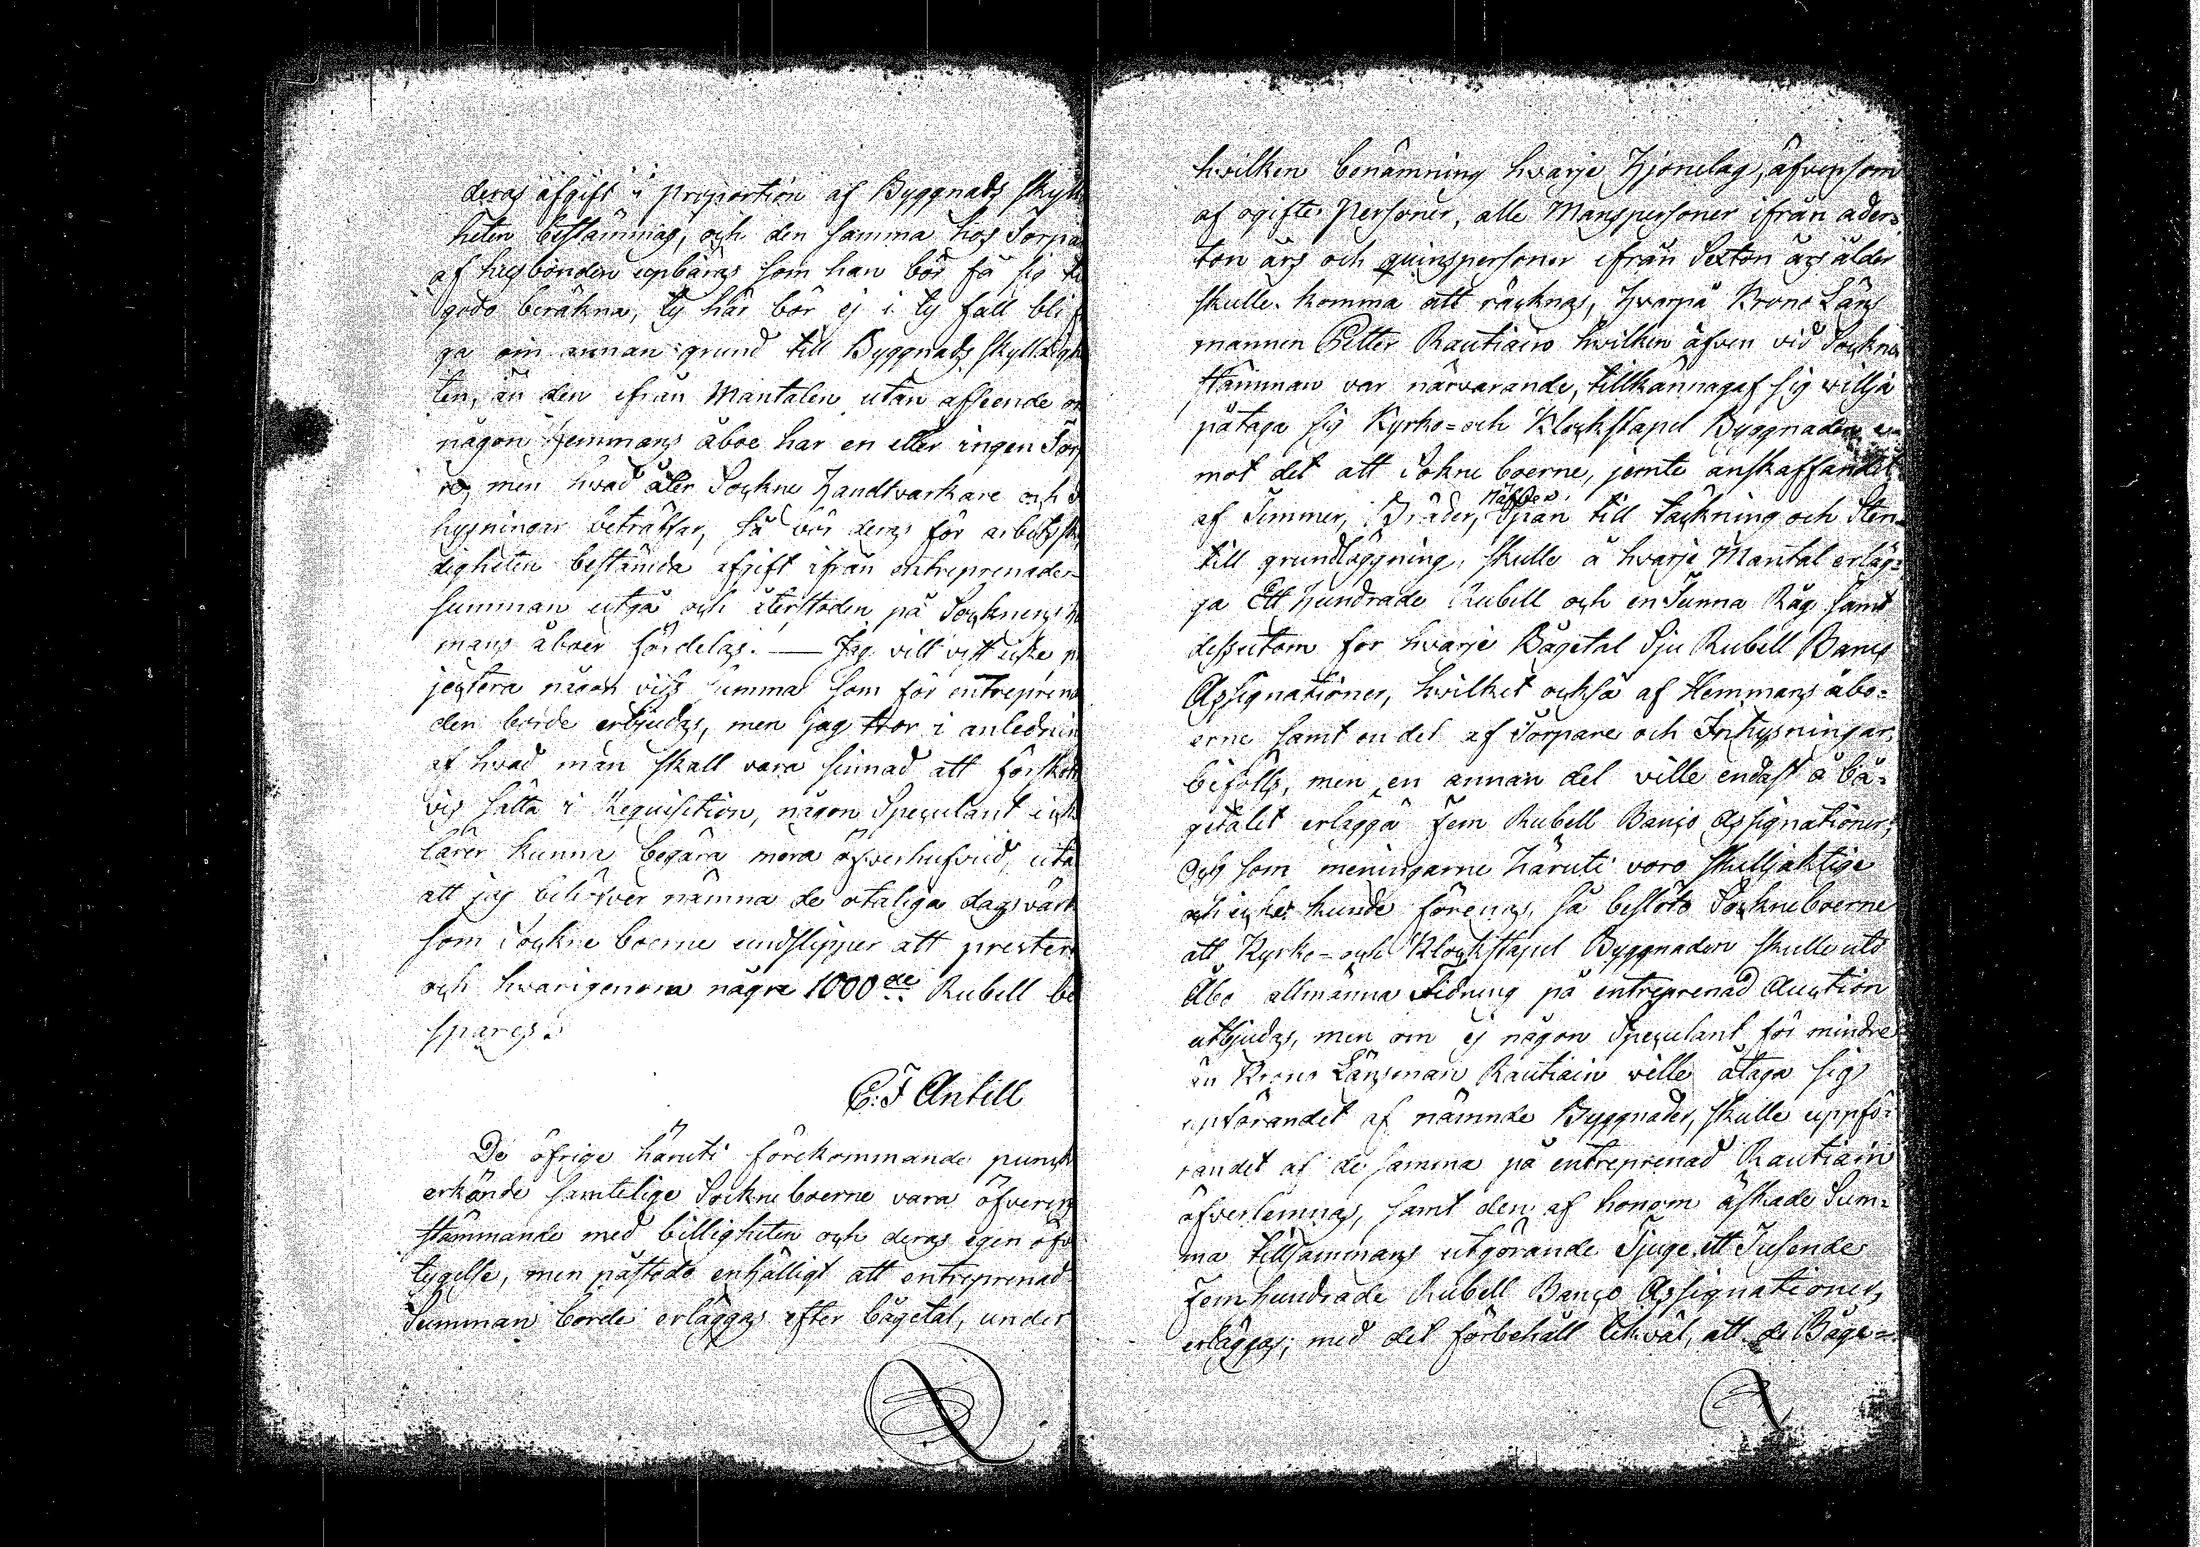 deras afgift i proportion af Byggnads skyl
heten bestämmas, och den samma hos Torpa
af husbonden upbäras som han bör få sig ti
godo beräkna, ty här bör ej i ty fall bli
ga om annan grund till Byggnads skyldigh
ten, än den ifrån Mantalen utan afseende
någon Hemmans åboe har en eller ingen Torp
re, men hvad åter Sockne Handtvärkare och
hysningar beträffar, så bör deras för arbets
digheten bestämda afgift ifrån entreprenader
summan utgå och återstoden på Socknens
mans åboer fördelas. — Jag vill vist icke
jectera någon viss summa som för entrepren
den borde erbjudas, men jag tror i anlednin
af hvad man skall vara sinnad att förskott
vis sätta i Requisition, någon Speculant ick
lärer kunna begära mera öfverhufvud, uta
att jag behöfver nämna de otaliga dagsvärk
som Sockne boerne undslipper att prester
och hvarigenom några 1000de Rubell be
sparas.
C: F Antell
De öfrige häruti förekommande punct
erkände samtelige Sockneboerne vara öfverens
stämmande med billigheten och deras egen öfv
tygelse, men påstodo enhälligt att entreprenad
Summan borde erläggas efter bågetal, under
hvilken benämning hvarje Hjonelag, äfvensom
af ogifte Personer, alle Manspersoner ifrån ader=
ton års och quinspersoner ifrån Sexton års ålder
skulle komma att räcknas, hvarpå Krono Läns
mannen Petter Rautiain hvilken äfven vid Sockne
stämman var närvarande, tillkännagaf sig villja
påtaga sig Kyrko= och Klockstapel Byggnaden e
mot det att Sokne boerne, jemte anskaffandet
af Timmer, Bräder, Näfver Spån till täckning och Sten
till grundläggning, skulle å hvarje Mantal erläg=
ga Ett hundrade Rubell och en Tunna Råg samt
dessutom för hvarje Bågetal Sju Rubell Banco
Assignationer, hvilket också af Hemmans åbo=
erne samt en del af Torpare och Inhysningar
bifölls, men en annan del ville endast å bå=
getalet erlägga fem Rubell Banco Assignationer;
Och som meningarne häruti voro skilljaktige
och icke kunde förenas, så beslöto Sockneboerne
att Kyrko= och Klockstapel Byggnaden skulle uti
Åbo allmänna Tidning på entreprenad Auction
utbjudas, men om ej någon Speculant för mindre
än Krono Länsman Rautiain ville åtaga sig
upförandet af nämnde Byggnader, skulle uppfö=
randet af de samma på entreprenad Rautiain
öfverlemnas, samt den af honom äskade Sum=
ma tillsammans utgörande Tjuge ett Tusende
Fem hundrade Rubell Banco Assignationer,
erläggas; med det förbehåll likväl, att de Båge=